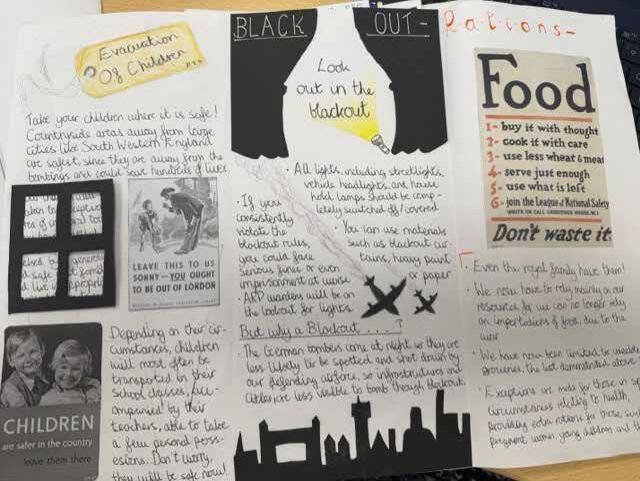 Evacuation
Of Children
Take your children where it is safe!
Countryside areas away from large
cities like South Western England
are safest, since they are away from the
bombings and could save hundreds of lives.
LEAVE THIS TO US
SONNY - YOU OUGHT
TO BE OUT OF LONDON
CHILDREN
are safer in the country
leave them there
Depending on their cir-
cumstances, children
will most often be
transported in their
school classes, acc-
ompanied by their
teachers, able to take
a few personal poss-
esions. Don't worry,
they will be safe now!
BLACK OUT-
Look
out in the
blackout
• All lights, including streetlights,
vehicle headlights, and house
hold lamps should be comp-
letely switched off/covered
• If you
consistently
violate the
blackout rules,
you could face
serious fines or even
imprisonment at worse
• ARP wardens will be on
the lookout for lights.
• You can use materials
such as blackout cur-
tains, heavy paint
or paper
But why a Blackout....?
• The German bombers come at night so they are
less likely to be spotted and shot down by
our defending airforce, so infrastructures and
cities are less visible to bomb though blackout.
Rations-
Food
1- buy it with thought
2- cook it with care
3- use less wheat & meat
4- serve just enough
5- use what is left
6- join the League of National Safety
Don't waste it
• Even the royal family have them!
• We now have to rely mainly on our
resources for we can no longer rely
on importations of food, due to the
war
• We have now been limited to
groceries, the last demonstrated above
• Exceptions are made for those in
circumstances relating to health,
providing extra rations for those
pregnant women, young children and